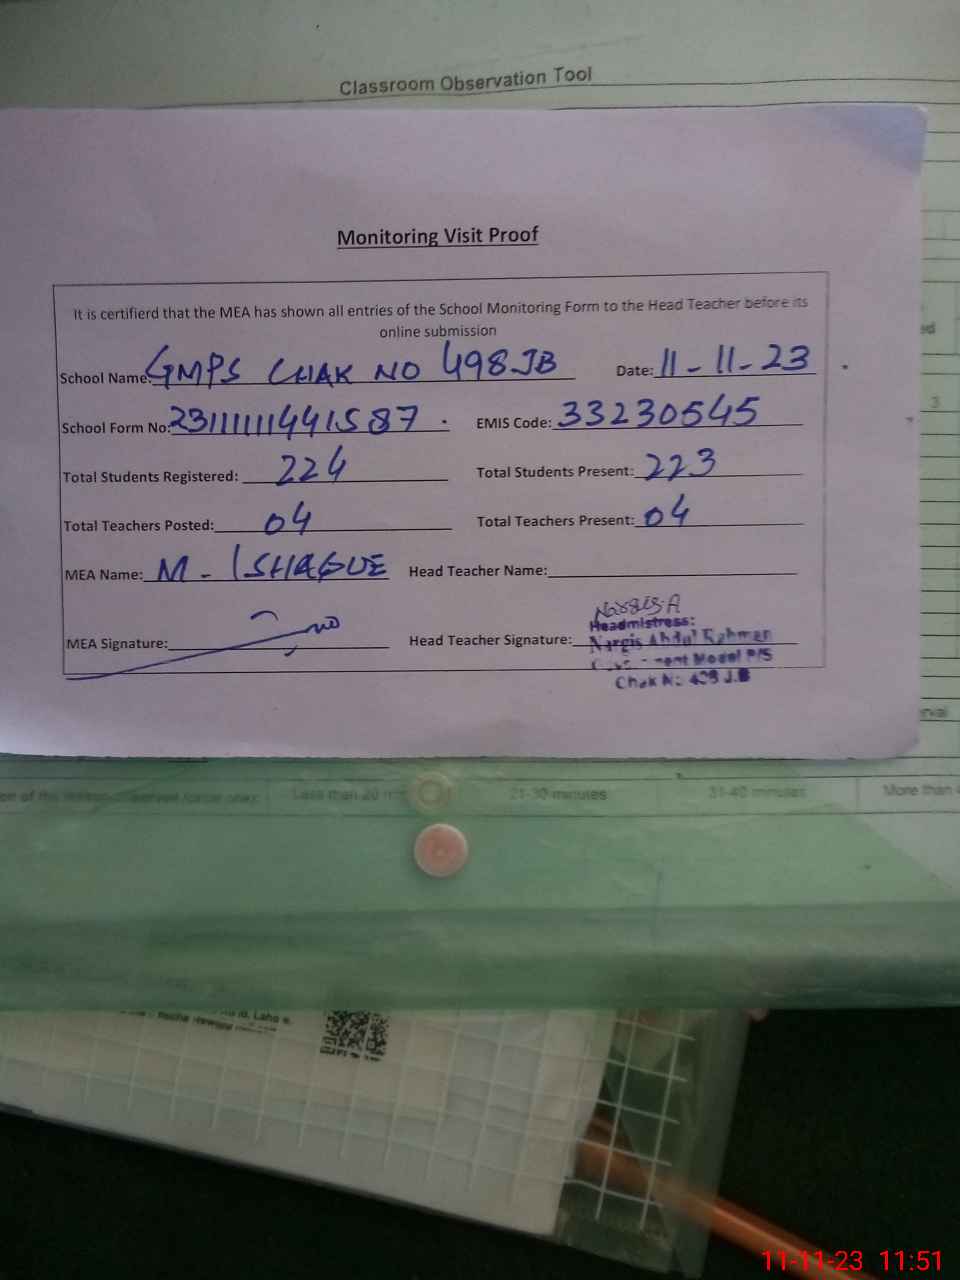 Classroom Observation Tool
Monitoring Visit Proof
It is certifierd that the MEA has shown all entries of the School Monitoring Form to the Head Teacher before its
online submission
School Name: GMPS CHAK NO 498JB Date: 11-11-23
School Form No: 2311111441587 EMIS Code: 33230545
Total Students Registered: 224 Total Students Present: 223
Total Teachers Posted: 04 Total Teachers Present: 04
MEA Name: M-ISHAQUE Head Teacher Name:
Nargis.A
MEA Signature: Head Teacher Signature:
Headmistress:
Nargis Abdul Rahman
Model P/S
Chak No J.B
3
Less than 20 21-30 minutes 31-40 minutes More than
11-11-23 11:51